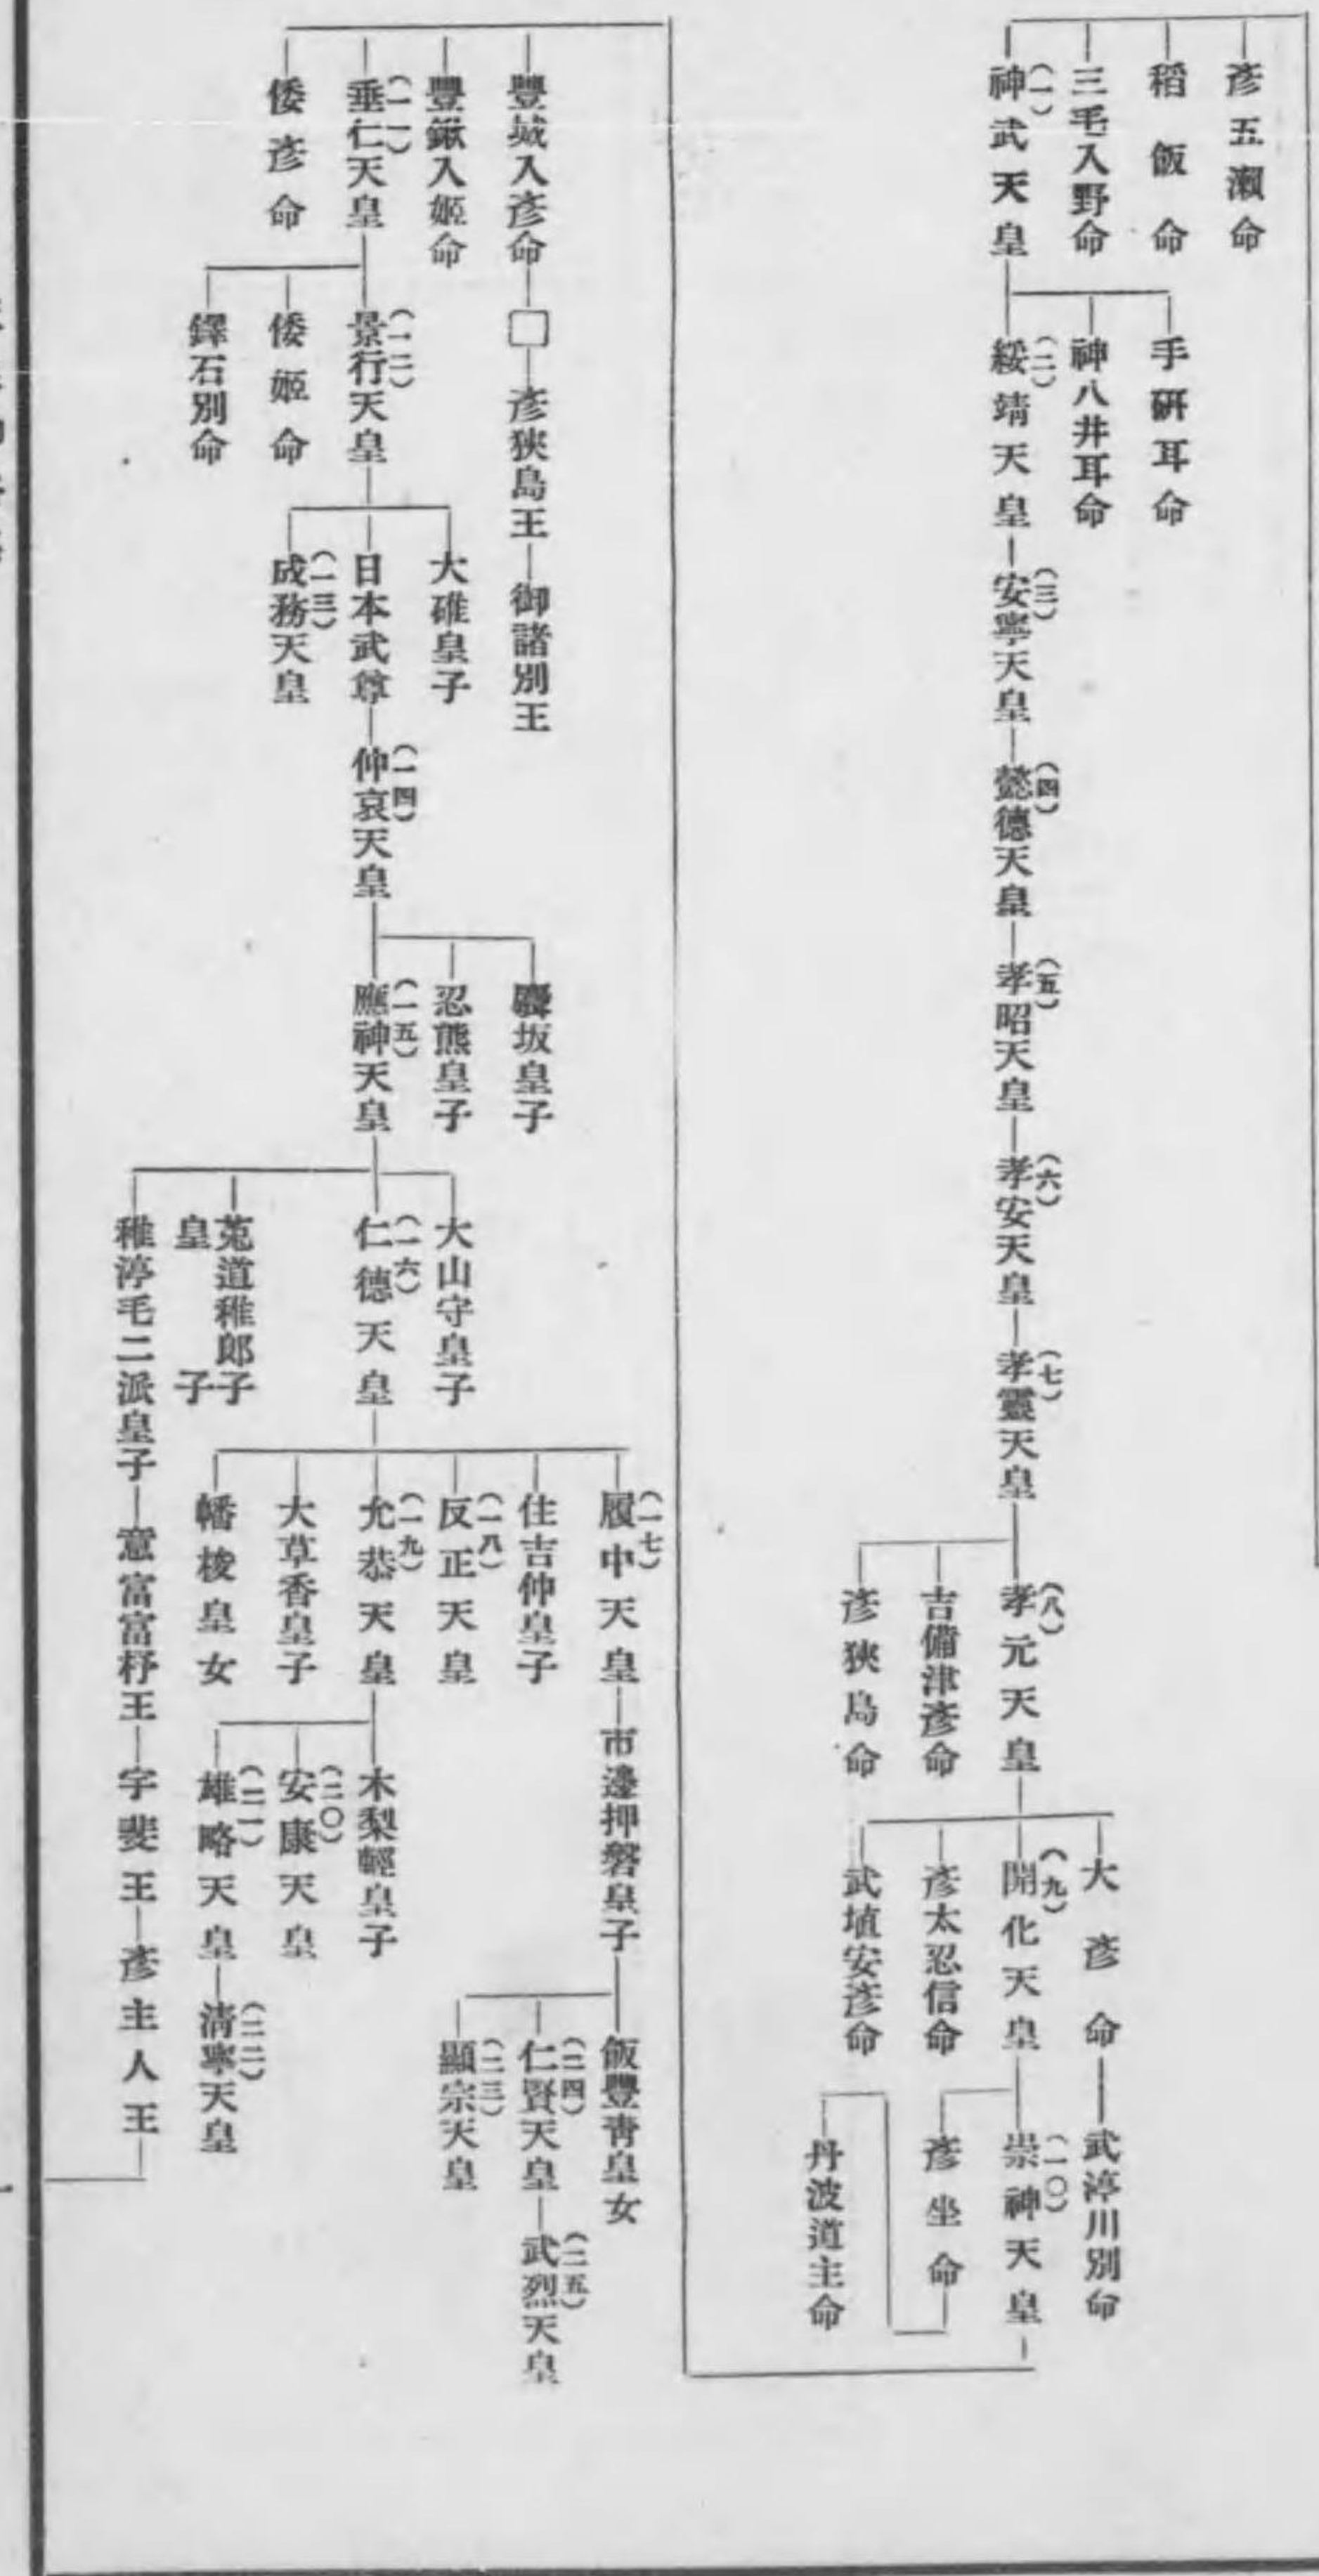 彥五瀨命
稻飯命
三毛入野命
(一)神武天皇
手硏耳命
神八井耳命
(二)綏靖天皇
(三)安寧天皇
(四)懿德天皇
(五)孝昭天皇
(六)孝安天皇
(七)孝靈天皇
(八)孝元天皇
吉備津彥命
彥狹島命
大彥命
武渟川別命
(九)開化天皇
彥太忍信命
武埴安彥命
(一〇)崇神天皇
彥坐命
丹波道主命
豐城入彥命
□
彥狹島王
御諸別王
豐鍬入姬命
(一一)垂仁天皇
倭彥命
(一二)景行天皇
倭姬命
鐸石別命
大碓皇子
日本武尊
(一三)成務天皇
(一四)仲哀天皇
麛坂皇子
忍熊皇子
(一五)應神天皇
大山守皇子
(一六)仁德天皇
菟道稚郎子
皇子
稚渟毛二派皇子
意富富杼王
宇斐王
彥主人王
(一七)履中天皇
市邊押磐皇子
住吉仲皇子
(一八)反正天皇
(一九)允恭天皇
大草香皇子
幡梭皇女
飯豐靑皇女
(二四)仁賢天皇
(二五)武烈天皇
(二三)顯宗天皇
木梨輕皇子
(二〇)安康天皇
(二一)雄略天皇
(二二)淸寧天皇